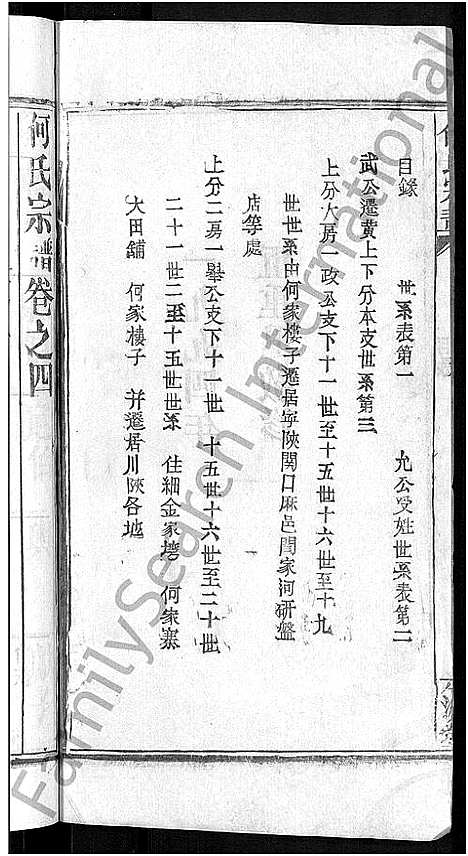 目錄　世系表第一　允公受姓世系表第二
武公遷黃上下分本支世系第三
上分大房一政公支下十一世至十五世十六世至十九
世世系由何家樓子遷居寧陝関口麻邑閻家河研盤
店等處
上分二房一舉公支下十一世　十五世十六世至二十世
二十一世二至十五世世系　住細金家塆　何家寨
大田舖　何家樓子　并遷居川陝各地
何氏宗譜卷之四
FamilySearch International